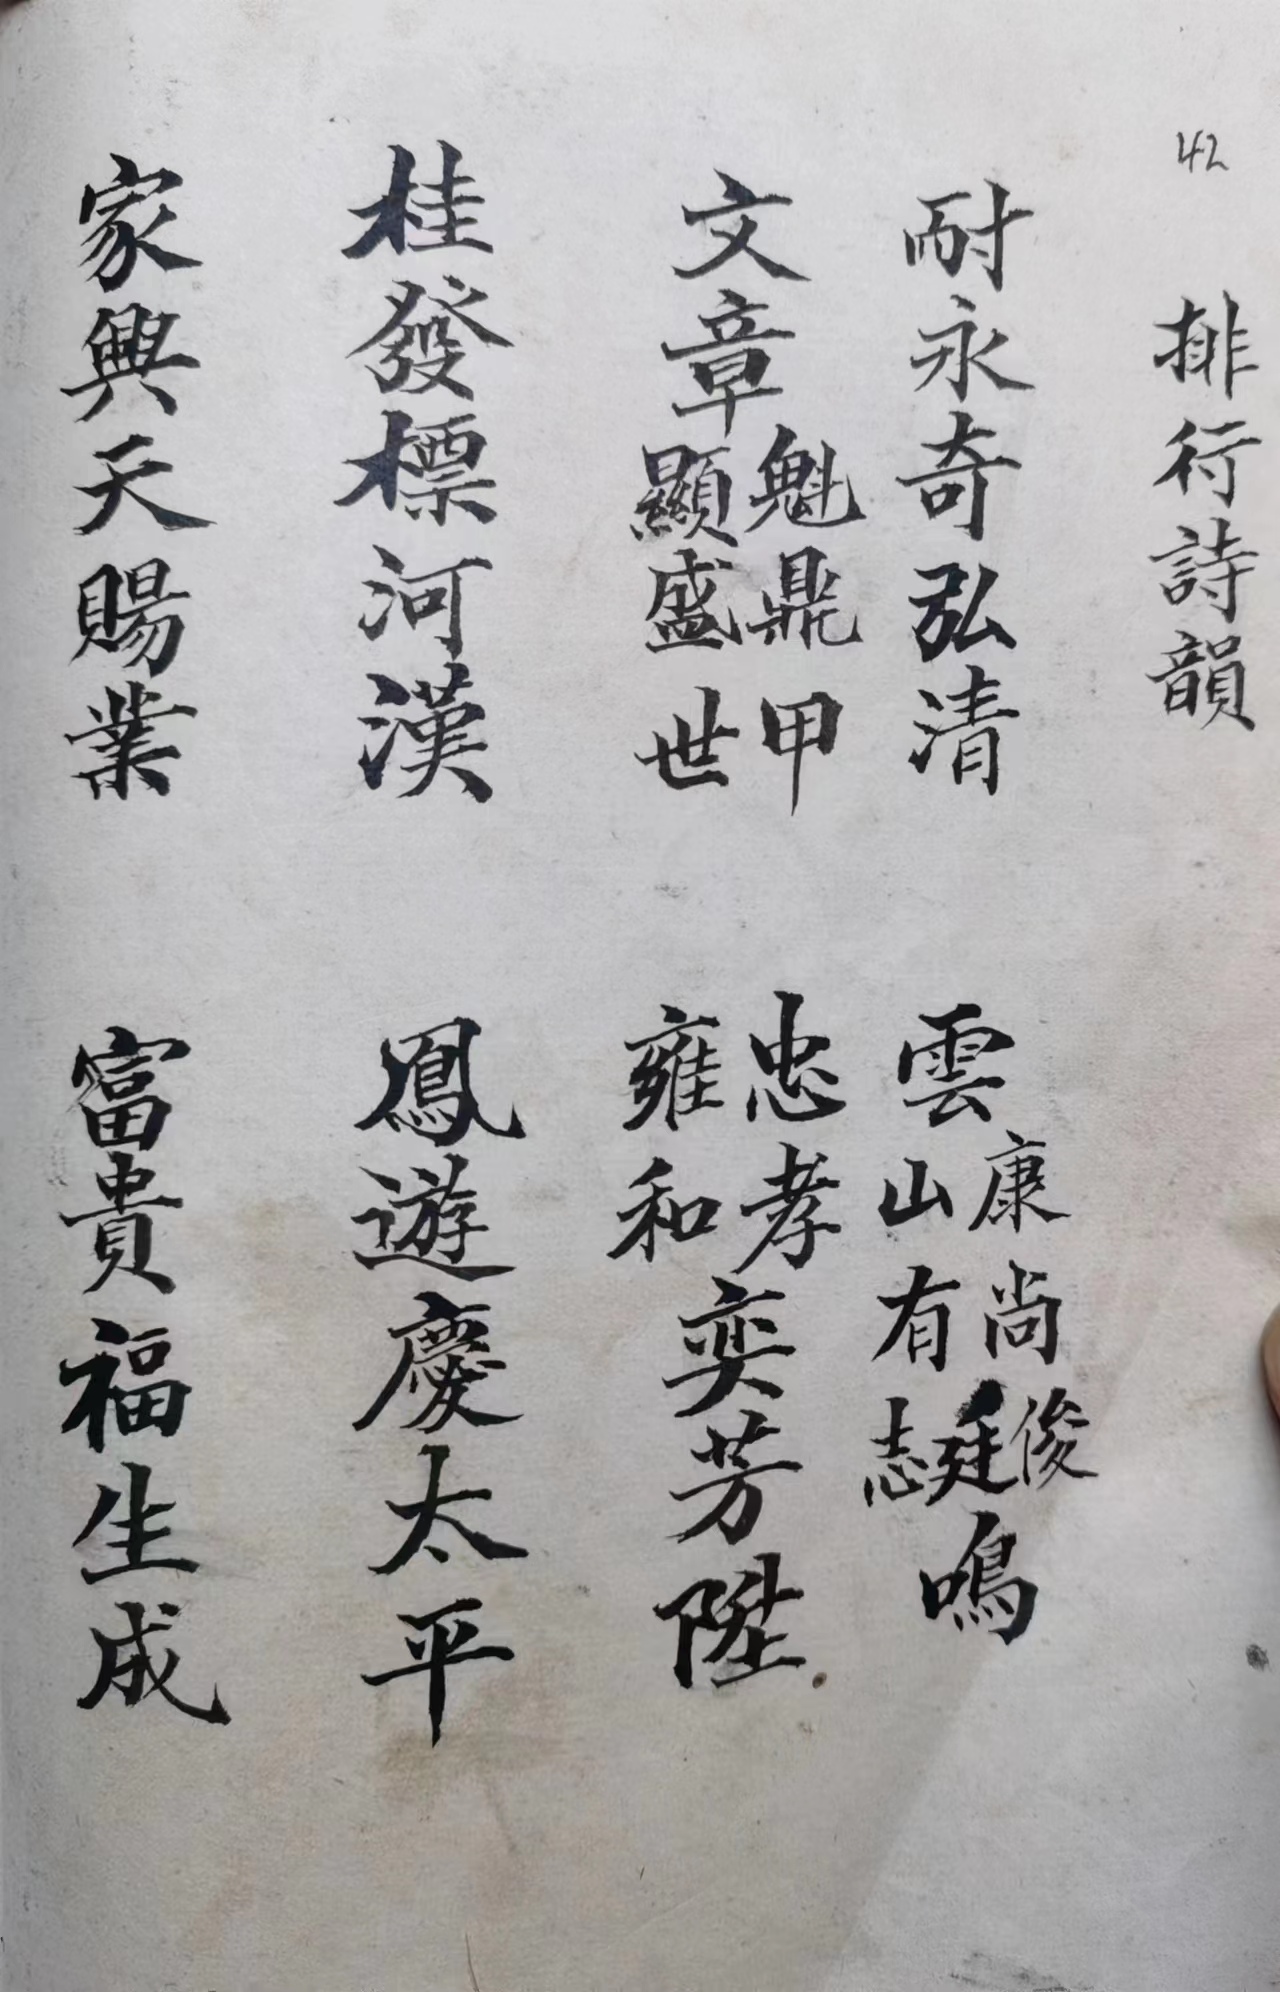 42
排行詩韻
耐永奇弘清
雲康山尚有俊廷志鳴
文章魁顯鼎盛甲世
忠雍孝和奕芳陞
桂發標河漢
鳳遊慶太平
家興天賜業
富貴福生成